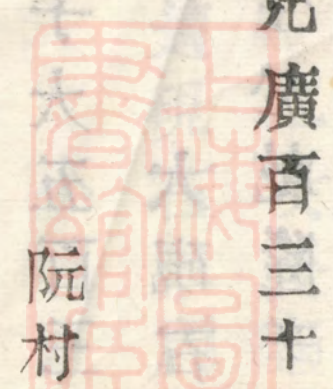 廣百三十
阮村
上海圖
書館藏